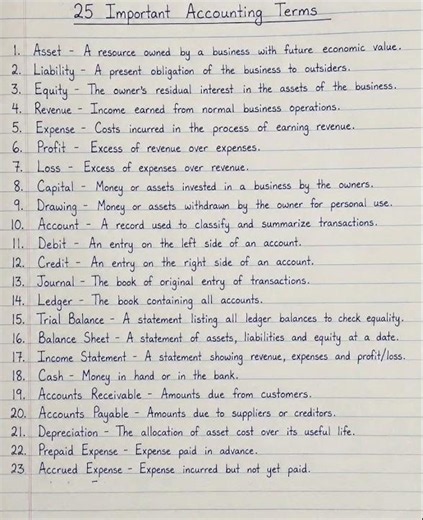 25 Important Accounting Terms
1. Asset - A resource owned by a business with future economic value.
2. Liability - A present obligation of the business to outsiders.
3. Equity - The owner's residual interest in the assets of the business.
4. Revenue - Income earned from normal business operations.
5. Expense - Costs incurred in the process of earning revenue.
6. Profit - Excess of revenue over expenses.
7. Loss - Excess of expenses over revenue.
8. Capital - Money or assets invested in a business by the owners.
9. Drawing - Money or assets withdrawn by the owner for personal use.
10. Account - A record used to classify and summarize transactions.
11. Debit - An entry on the left side of an account.
12. Credit - An entry on the right side of an account.
13. Journal - The book of original entry of transactions.
14. Ledger - The book containing all accounts.
15. Trial Balance - A statement listing all ledger balances to check equality.
16. Balance Sheet - A statement of assets, liabilities and equity at a date.
17. Income Statement - A statement showing revenue, expenses and profit/loss.
18. Cash - Money in hand or in the bank.
19. Accounts Receivable - Amounts due from customers.
20. Accounts Payable - Amounts due to suppliers or creditors.
21. Depreciation - The allocation of asset cost over its useful life.
22. Prepaid Expense - Expense paid in advance.
23 Accrued Expense - Expense incurred but not yet paid.